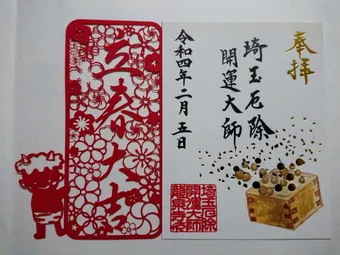 奉拝
埼玉厄除
開運大師
令和四年二月五日
立春大吉
埼玉厄除
開運大師
龍泉寺